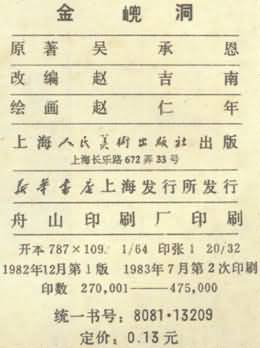 金 𡷗 洞
原著 吴承恩
改编 赵吉南
绘画 赵仁年
上海人民美術出版社出版
上海长乐路 672 弄 33 号
新華書店上海发行所发行
舟山印刷厂印刷
开本 787×109. 1/64 印张 1 20/32
1982年12月第1版 1983年7月第2次印刷
印数 270,001——475,000
统一书号: 8081·13209
定价: 0.13 元